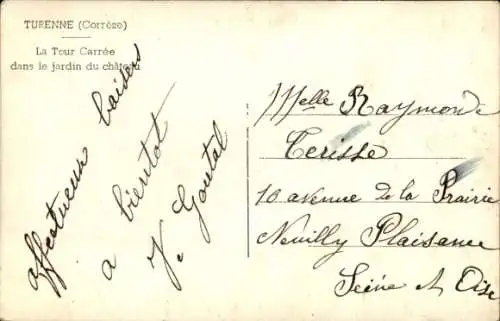 TURENNE (Corrèze)
La Tour Carrée
dans le jardin du château
affectueux baisers
a bientot
Y. Goutal
Melle Raymonde
Terisse
10 avenue de la Prairie
Neuilly Plaisance
Seine et Oise